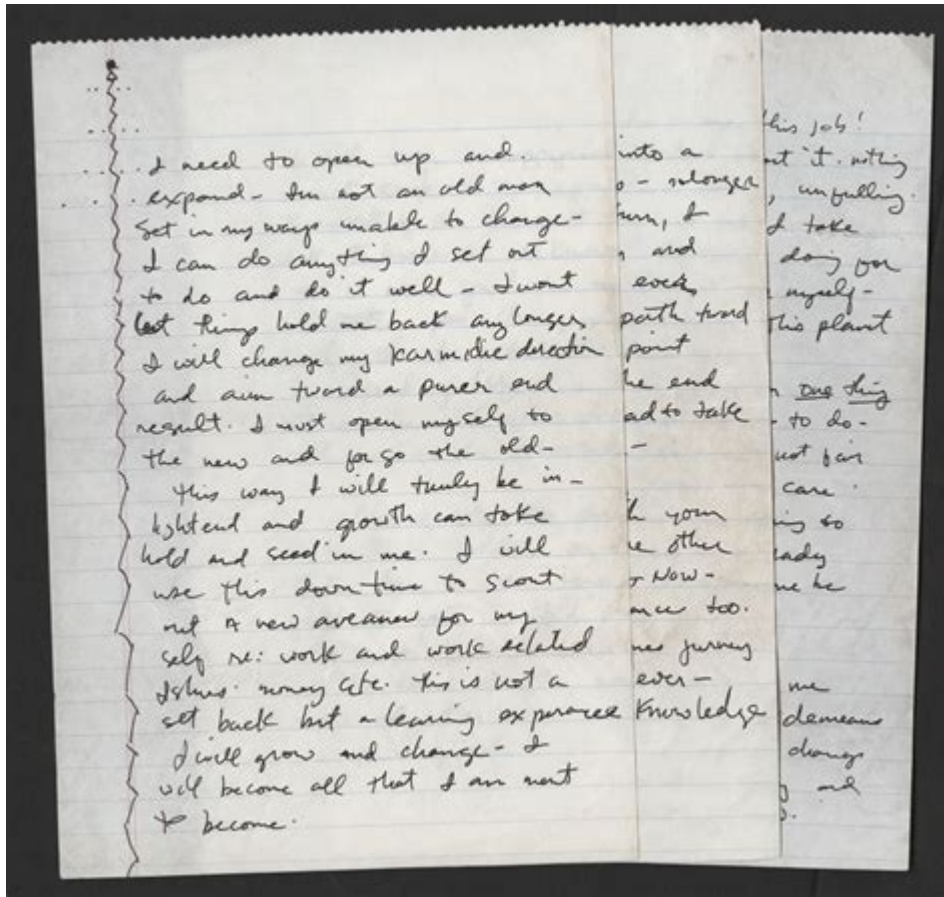 I need to open up and
expand - Im not an old man
Set in my ways unable to change -
I can do anything I set out
to do and do it well - I wont
let things hold me back any longer
I will change my karmidic direction
and aim tward a purer end
result. I must open myself to
the new and forgo the old -
this way I will trunly be in-
lightend and growth can take
hold and seed in me. I will
use this down time to scout
out A new aveanew for my
self re: work and work related
Ishues. money etc. this is not a
set back but a learing experance
I will grow and change - I
will become all that I am ment
to become.
into a
- nolonger
turn, I
and
ever
path tward
point
he end
ad to take
-
h your
he other
Now -
nce too.
nes jurney
ever -
Knowledge
this job!
ut it. nothing
, unfulling.
I take
doing for
myself -
this planit
n one thing
- to do -
not fair
care
ing so
eady
me he
me
demeans
change
g and